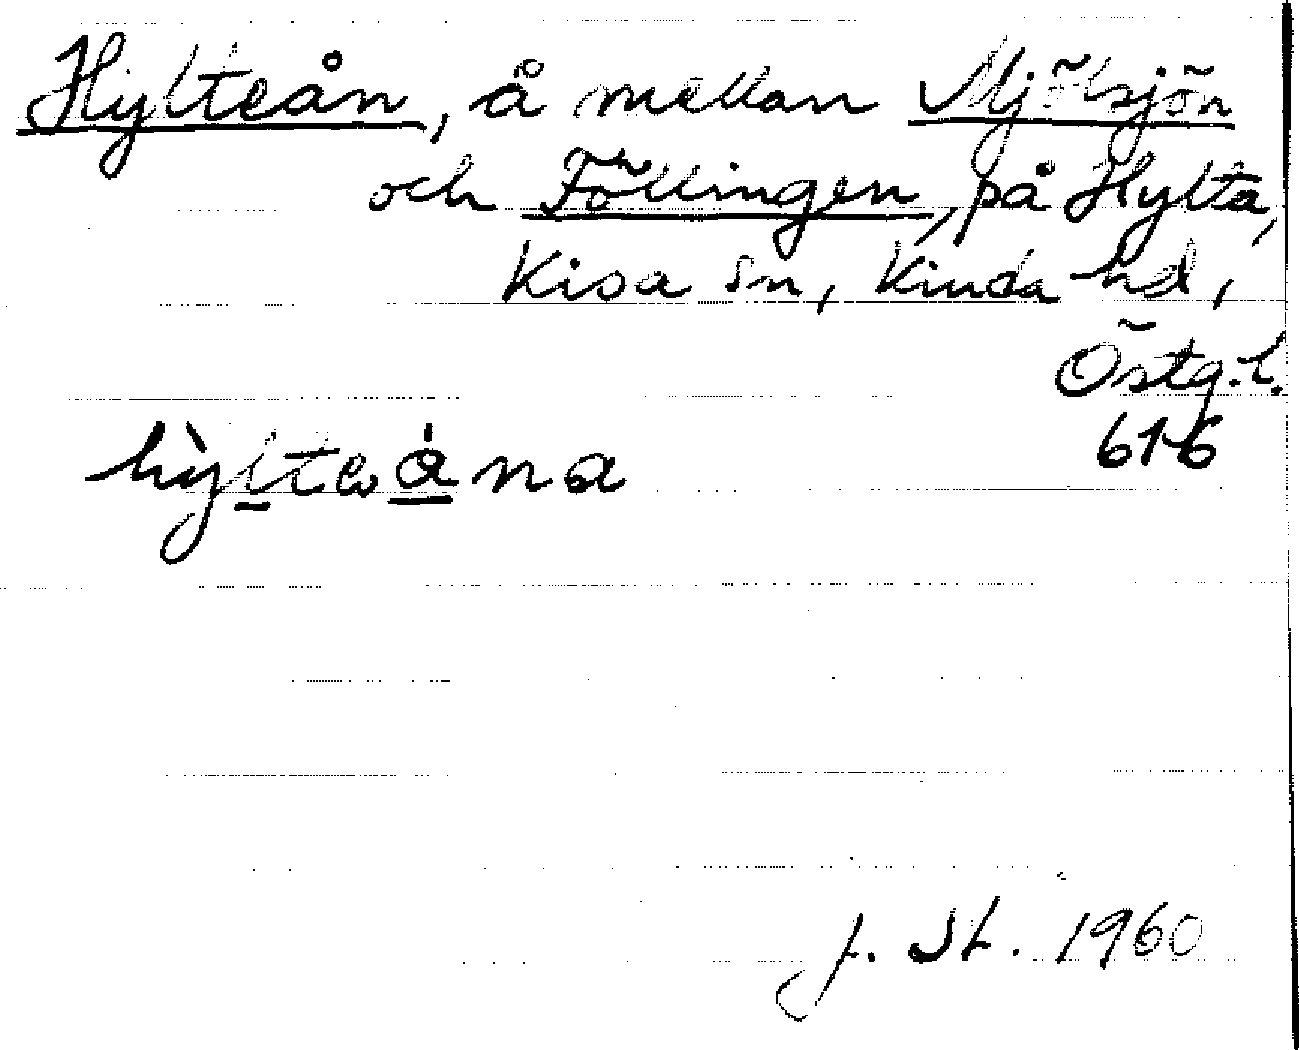 Hylteån, å mellan Mjölsjön
och Föllingen, på Hylta,
Kisa sn, Kinda hd,
Östg. l.
61-6
J. St. 1960